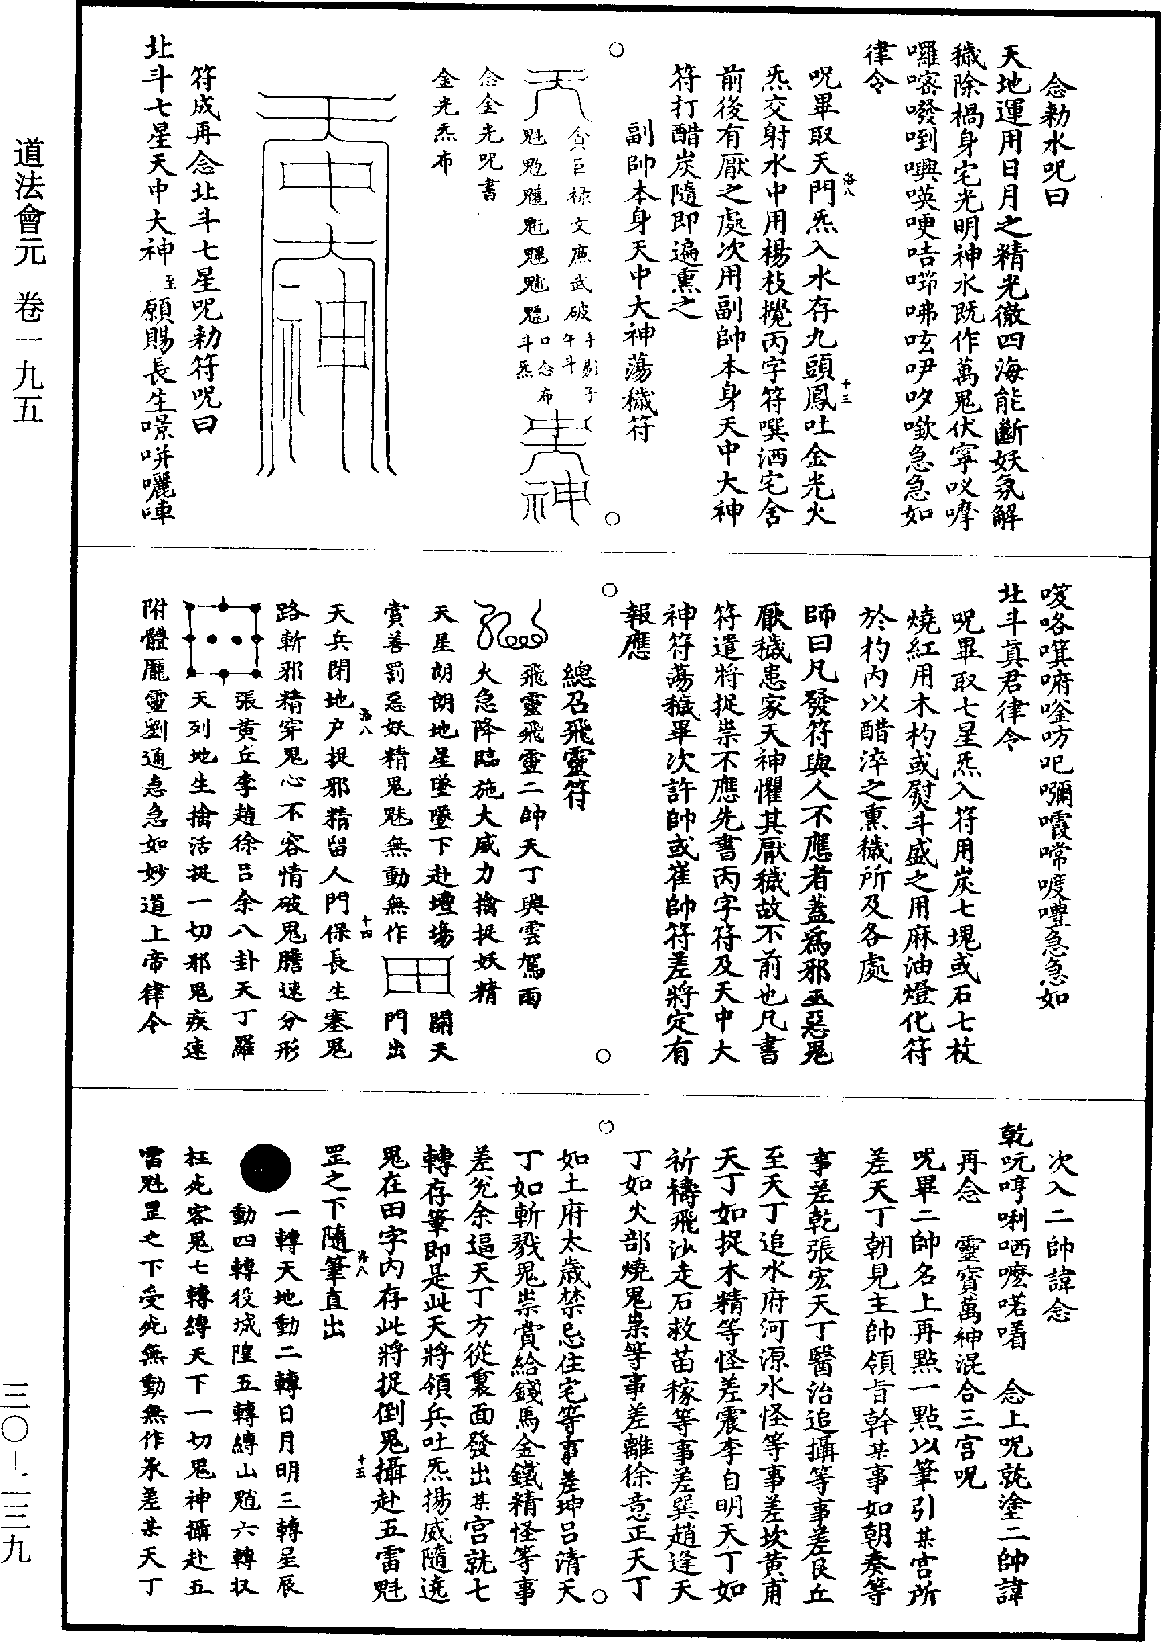 道法會元　卷一九五
念勑水咒曰
天地運用日月之精光徹四海能斷妖氛解
穢除禍身宅光明神水既作萬鬼伏寧
急急如
律令
咒畢取天門炁入水存九頭鳳吐金光火
炁交射水中用楊枝攪丙字符噀洒宅舍
前後有厭之處次用副帥本身天中大神
符打醋炭隨即遍熏之
副帥本身天中大神蕩穢符
貪巨祿文廉武破
口念
斗炁布
念金光咒書
金光炁布
符成再念北斗七星咒勑符咒曰
北斗七星天中大神至願賜長生
急急如
北斗真君律令
咒畢取七星炁入符用炭七塊或石七枚
燒紅用木杓或熨斗盛之用麻油燈化符
於杓內以醋淬之熏穢所及各處
師曰凡發符與人不應者蓋為邪巫惡鬼
厭穢患家天神懼其厭穢故不前也凡書
符遣將捉祟不應先書丙字符及天中大
神符蕩穢畢次許帥或崔帥符差將定有
報應
總召飛靈符
飛靈飛靈二帥天丁興雲駕雨
火急降臨施大威力擒捉妖精
天星朗朗地星墜墜下赴壇場
賞善罰惡妖精鬼魅無動無作
開天
門出
天兵閉地户捉邪精留人門保長生塞鬼
路斬邪精穿鬼心不容情破鬼膽速分形
張黃丘李趙徐呂余八卦天丁羅
天列地生擒活捉一切邪鬼疾速
附體顯靈劉通急急如妙道上帝律令
次入二帥諱念
乾吭哼唎哂嚒喏嗜　念上咒就塗二帥諱
再念　靈寶萬神混合三宮咒
咒畢二帥名上再點一點以筆引某宮所
差天丁朝見主帥領旨幹某事如朝奏等
事差乾張宏天丁醫治追攝等事差艮丘
至天丁追水府河源水怪等事差坎黃甫
天丁如捉木精等怪差震李自明天丁如
祈禱飛沙走石救苗稼等事差巽趙逢天
丁如火部燒鬼祟等事差離徐意正天丁
如土府太歲禁忌住宅等事差坤呂清天
丁如斬戮鬼祟賞給錢馬金鐵精怪等事
差兌余逼天丁方從裏面發出某宮就七
轉存筆即是此天將領兵吐炁揚威隨遶
鬼在田字內存此將捉倒鬼攝赴五雷魁
罡之下隨筆直出
一轉天地動二轉日月明三轉星辰
動四轉役城隍五轉縛山魈六轉收
枉死客鬼七轉縛天下一切鬼神攝赴五
雷魁罡之下受死無動無作承差某天丁
三〇—二三九